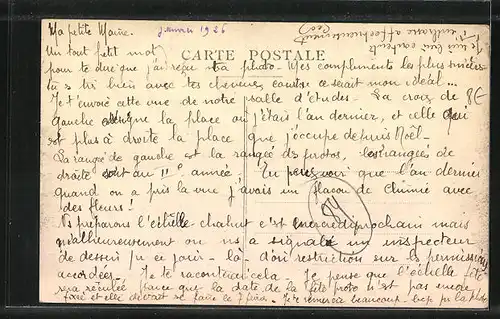 Ma petite Marie. Janvier 1926
Un tout petit mot CARTE POSTALE
pour te dire que j'ai reçu ta photo. Mes compliments les plus sincères
tu es très bien avec tes cheveux ce serait mon idéal...
Je t'envoie cette vue de notre salle d'études. La croix de
gauche désigne la place ou j'étais l'an dernier, et celle qui
est plus à droite la place que j'occupe depuis Noël.
La rangée de gauche est la rangée des photos, les rangées de
droite sont au 11e année. Tu peux voir que l'an dernier
quand on a pris la vue j'avais un flacon de chimie avec
des fleurs!
Ns préparons l'échelle chahut c'est mercredi prochain mais
malheureusement on ns a signalé un inspecteur
de dessin pr ce jour-là d'où restriction sur les permissions
accordées. Je te raconterai cela. Je pense que l'échelle fête
sera reculée parce que la date de la fête proto n'est pas encore
fixée et elle devait se faire le 7 févr. Je te remercie beaucoup pr la photo
Je suis très contente
j'embrasse affectueusement